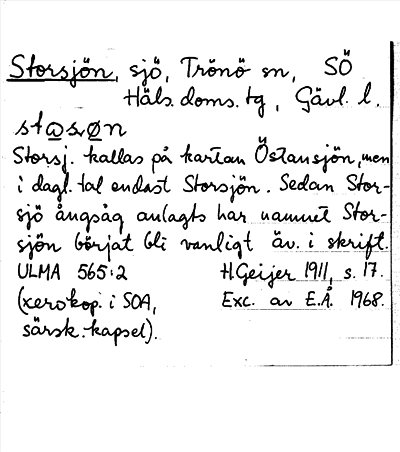 Storsjön, sjö, Trönö sn, SÖ
Häls. doms. tg, Gävl. l.
Storsj. kallas på kartan Östansjön, men
i dagl. tal endast Storsjön. Sedan Stor-
sjö ångsåg anlagts har namnet Stor-
sjön börjat bli vanligt äv. i skrift.
ULMA 565:2 H. Geijer 1911, s. 17.
(xerokop. i SOA, Exc. av E.Å. 1968.
särsk. kapsel).